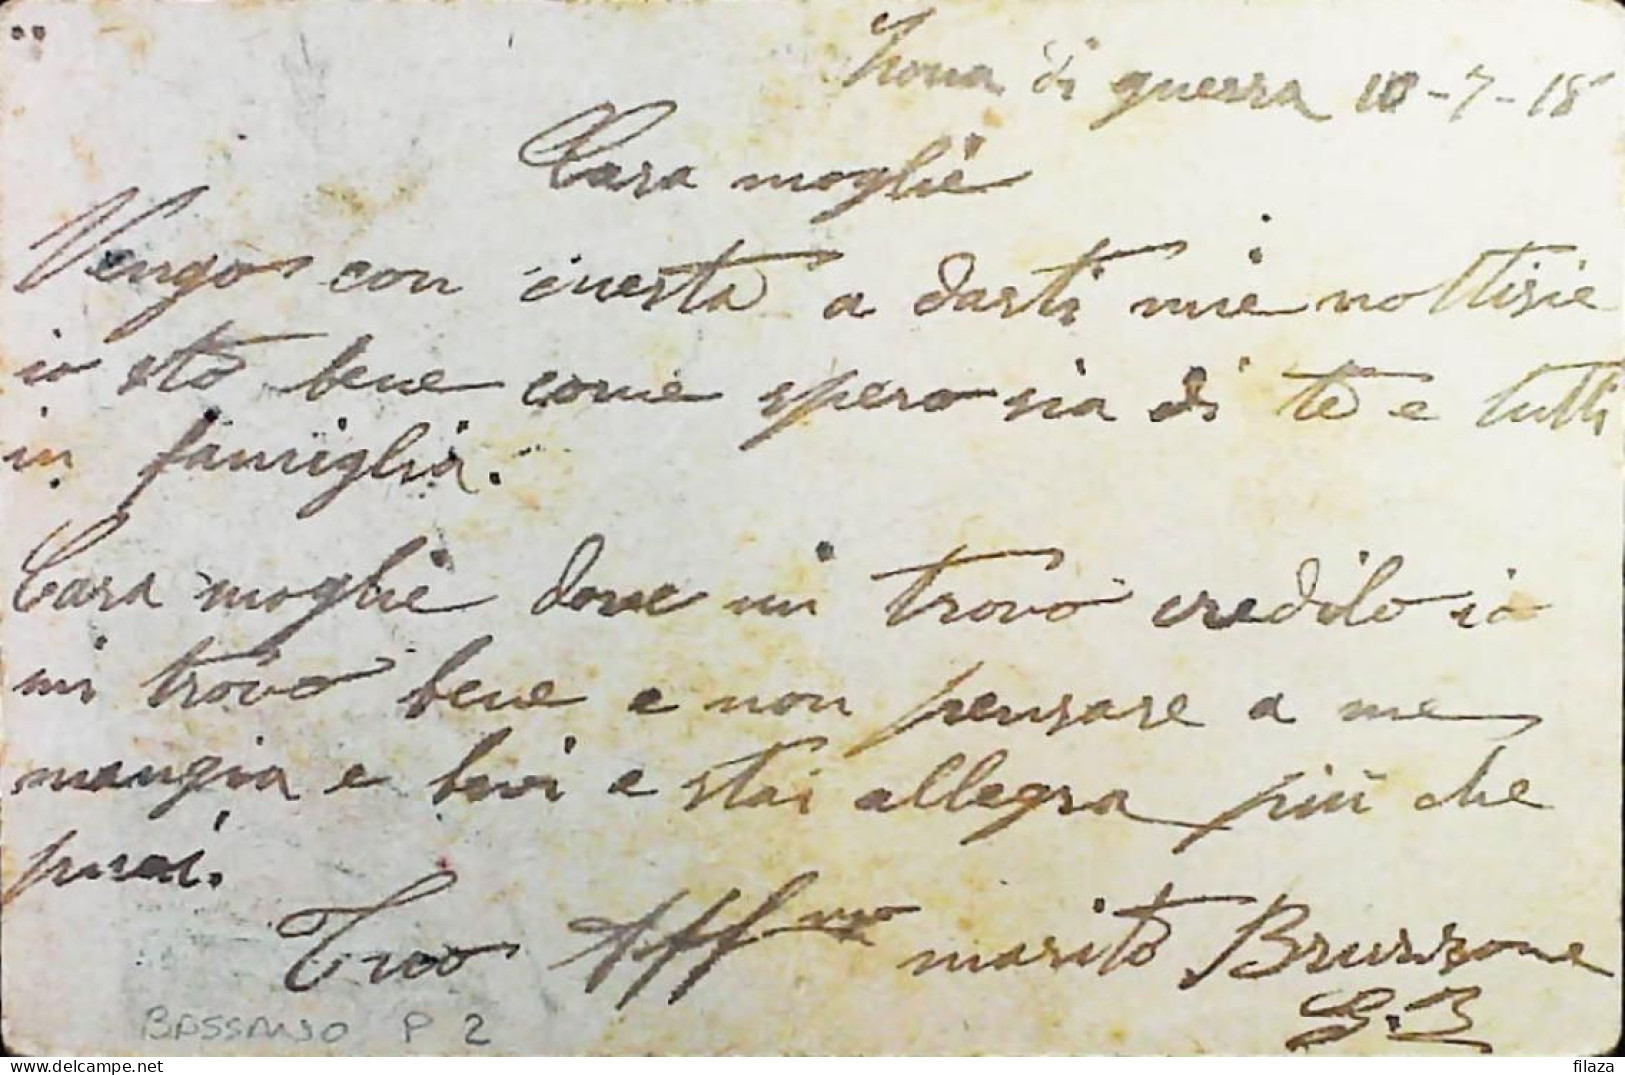 Zona di guerra 10-7-18
Cara moglie
Vengo con questa a darti mie nottizie
io sto bene come spero sia di te e tutti
in famiglia.
Cara moglie dove mi trovo credilo io
mi trovo bene e non pensare a me
mangia e bevi e stai allegra più che
puoi.
Tuo Aff mo marito Bruzzone
G.B
BASSANO P 2
delcampe.net
filaza